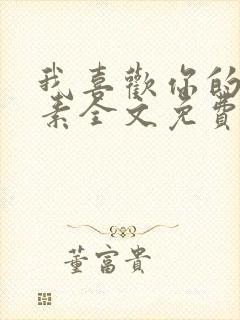 我喜歡你的
素全文免費
董富貴